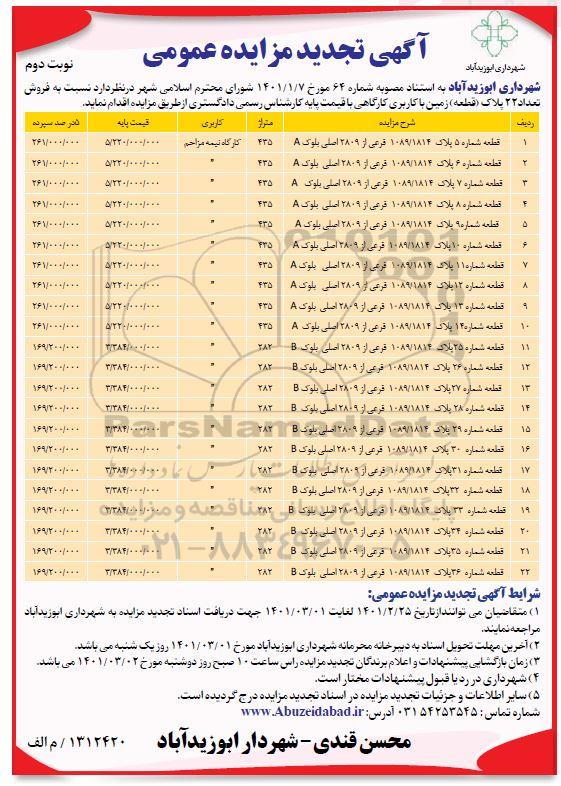 شهرداری ابوزیدآباد
آگهی تجدید مزایده عمومی
نوبت دوم
شهرداری ابوزیدآباد به استناد مصوبه شماره ۶۴ مورخ ۱۴۰۱/۱/۷ شورای محترم اسلامی شهر درنظردارد نسبت به فروش
تعداد۲۲ پلاک (قطعه) زمین با کاربری کارگاهی با قیمت پایه کارشناس رسمی دادگستری از طریق مزایده اقدام نماید.
ردیف شرح مزایده متراژ کاربری قیمت پایه ۵در صد سپرده
۱ قطعه شماره ۵ پلاک ۱۰۸۹/۱۸۱۴ فرعی از ۲۸۰۹ اصلی بلوک A ۴۳۵ کارگاه نیمه مزاحم ۵/۲۲۰/۰۰۰/۰۰۰ ۲۶۱/۰۰۰/۰۰۰
۲ قطعه شماره ۶ پلاک ۱۰۸۹/۱۸۱۴ فرعی از ۲۸۰۹ اصلی بلوک A ۴۳۵ " ۵/۲۲۰/۰۰۰/۰۰۰ ۲۶۱/۰۰۰/۰۰۰
۳ قطعه شماره ۷ پلاک ۱۰۸۹/۱۸۱۴ فرعی از ۲۸۰۹ اصلی بلوک A ۴۳۵ " ۵/۲۲۰/۰۰۰/۰۰۰ ۲۶۱/۰۰۰/۰۰۰
۴ قطعه شماره ۸ پلاک ۱۰۸۹/۱۸۱۴ فرعی از ۲۸۰۹ اصلی بلوک A ۴۳۵ " ۵/۲۲۰/۰۰۰/۰۰۰ ۲۶۱/۰۰۰/۰۰۰
۵ قطعه شماره۹ پلاک ۱۰۸۹/۱۸۱۴ فرعی از ۲۸۰۹ اصلی بلوک A ۴۳۵ " ۵/۲۲۰/۰۰۰/۰۰۰ ۲۶۱/۰۰۰/۰۰۰
۶ قطعه شماره ۱۰پلاک ۱۰۸۹/۱۸۱۴ فرعی از ۲۸۰۹ اصلی بلوک A ۴۳۵ " ۵/۲۲۰/۰۰۰/۰۰۰ ۲۶۱/۰۰۰/۰۰۰
۷ قطعه شماره۱۱ پلاک ۱۰۸۹/۱۸۱۴ فرعی از ۲۸۰۹ اصلی بلوک A ۴۳۵ " ۵/۲۲۰/۰۰۰/۰۰۰ ۲۶۱/۰۰۰/۰۰۰
۸ قطعه شماره ۱۲پلاک ۱۰۸۹/۱۸۱۴ فرعی از ۲۸۰۹ اصلی بلوک A ۴۳۵ " ۵/۲۲۰/۰۰۰/۰۰۰ ۲۶۱/۰۰۰/۰۰۰
۹ قطعه شماره ۱۳ پلاک ۱۰۸۹/۱۸۱۴ فرعی از ۲۸۰۹ اصلی بلوک A ۴۳۵ " ۵/۲۲۰/۰۰۰/۰۰۰ ۲۶۱/۰۰۰/۰۰۰
۱۰ قطعه شماره۱۴ پلاک ۱۰۸۹/۱۸۱۴ فرعی از ۲۸۰۹ اصلی بلوک A ۴۳۵ " ۵/۲۲۰/۰۰۰/۰۰۰ ۲۶۱/۰۰۰/۰۰۰
۱۱ قطعه شماره ۲۵پلاک ۱۰۸۹/۱۸۱۴ فرعی از ۲۸۰۹ اصلی بلوک B ۲۸۲ " ۳/۳۸۴/۰۰۰/۰۰۰ ۱۶۹/۲۰۰/۰۰۰
۱۲ قطعه شماره ۲۶ پلاک ۱۰۸۹/۱۸۱۴ فرعی از ۲۸۰۹ اصلی بلوک B ۲۸۲ " ۳/۳۸۴/۰۰۰/۰۰۰ ۱۶۹/۲۰۰/۰۰۰
۱۳ قطعه شماره ۲۷پلاک ۱۰۸۹/۱۸۱۴ فرعی از ۲۸۰۹ اصلی بلوک B ۲۸۲ " ۳/۳۸۴/۰۰۰/۰۰۰ ۱۶۹/۲۰۰/۰۰۰
۱۴ قطعه شماره ۲۸ پلاک ۱۰۸۹/۱۸۱۴ فرعی از ۲۸۰۹ اصلی بلوک B ۲۸۲ " ۳/۳۸۴/۰۰۰/۰۰۰ ۱۶۹/۲۰۰/۰۰۰
۱۵ قطعه شماره ۲۹ پلاک ۱۰۸۹/۱۸۱۴ فرعی از ۲۸۰۹ اصلی بلوک B ۲۸۲ " ۳/۳۸۴/۰۰۰/۰۰۰ ۱۶۹/۲۰۰/۰۰۰
۱۶ قطعه شماره ۳۰ پلاک ۱۰۸۹/۱۸۱۴ فرعی از ۲۸۰۹ اصلی بلوک B ۲۸۲ " ۳/۳۸۴/۰۰۰/۰۰۰ ۱۶۹/۲۰۰/۰۰۰
۱۷ قطعه شماره ۳۱پلاک ۱۰۸۹/۱۸۱۴ فرعی از ۲۸۰۹ اصلی بلوک B ۲۸۲ " ۳/۳۸۴/۰۰۰/۰۰۰ ۱۶۹/۲۰۰/۰۰۰
۱۸ قطعه شماره ۳۲پلاک ۱۰۸۹/۱۸۱۴ فرعی از ۲۸۰۹ اصلی بلوک B ۲۸۲ " ۳/۳۸۴/۰۰۰/۰۰۰ ۱۶۹/۲۰۰/۰۰۰
۱۹ قطعه شماره ۳۳ پلاک ۱۰۸۹/۱۸۱۴ فرعی از ۲۸۰۹ اصلی بلوک B ۲۸۲ " ۳/۳۸۴/۰۰۰/۰۰۰ ۱۶۹/۲۰۰/۰۰۰
۲۰ قطعه شماره ۳۴پلاک ۱۰۸۹/۱۸۱۴ فرعی از ۲۸۰۹ اصلی بلوک B ۲۸۲ " ۳/۳۸۴/۰۰۰/۰۰۰ ۱۶۹/۲۰۰/۰۰۰
۲۱ قطعه شماره ۳۵پلاک ۱۰۸۹/۱۸۱۴ فرعی از ۲۸۰۹ اصلی بلوک B ۲۸۲ " ۳/۳۸۴/۰۰۰/۰۰۰ ۱۶۹/۲۰۰/۰۰۰
۲۲ قطعه شماره ۳۶پلاک ۱۰۸۹/۱۸۱۴ فرعی از ۲۸۰۹ اصلی بلوک B ۲۸۲ " ۳/۳۸۴/۰۰۰/۰۰۰ ۱۶۹/۲۰۰/۰۰۰
شرایط آگهی تجدید مزایده عمومی:
۱) متقاضیان می توانند ازتاریخ ۱۴۰۱/۲/۲۵ لغایت ۱۴۰۱/۰۳/۰۱ جهت دریافت اسناد تجدید مزایده به شهرداری ابوزیدآباد
مراجعه نمایند.
۲) آخرین مهلت تحویل اسناد به دبیرخانه محرمانه شهرداری ابوزیدآباد مورخ ۱۴۰۱/۰۳/۰۱ روز یک شنبه می باشد.
۳) زمان بازگشایی پیشنهادات و اعلام برندگان تجدید مزایده راس ساعت ۱۰ صبح روز دوشنبه مورخ ۱۴۰۱/۰۳/۰۲ می باشد.
۴) شهرداری در رد یا قبول پیشنهادات مختار است.
۵) سایر اطلاعات و جزئیات تجدید مزایده در اسناد تجدید مزایده درج گردیده است.
شماره تماس : ۰۳۱۵۴۲۵۳۵۴۵ آدرس: www.Abuzeidabad.ir
محسن قندی - شهردار ابوزیدآباد
۱۳۱۲۴۲۰ / م الف